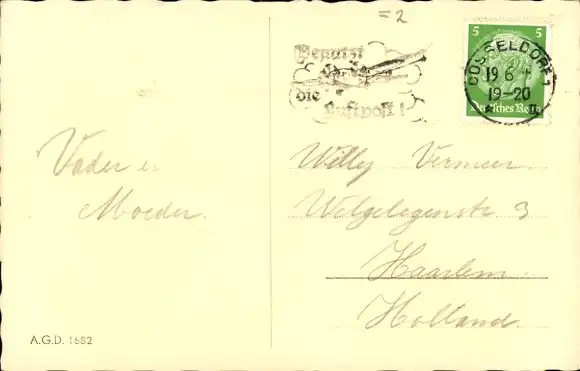 = 2
Benutzt
die Luftpost!
5 5
Deutsches Reich
DÜSSELDORF
19 6
19-20
Vader en
Moeder.
Willy Vermeer
Welgelegenstr 3
Haarlem
Holland.
A.G.D. 1682